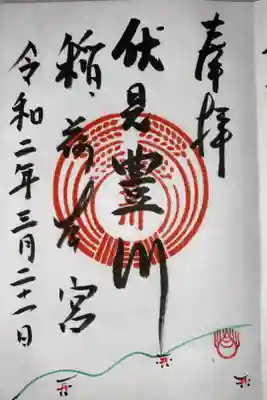 奉拝
伏見豊川
稲荷本宮
令和二年三月二十一日